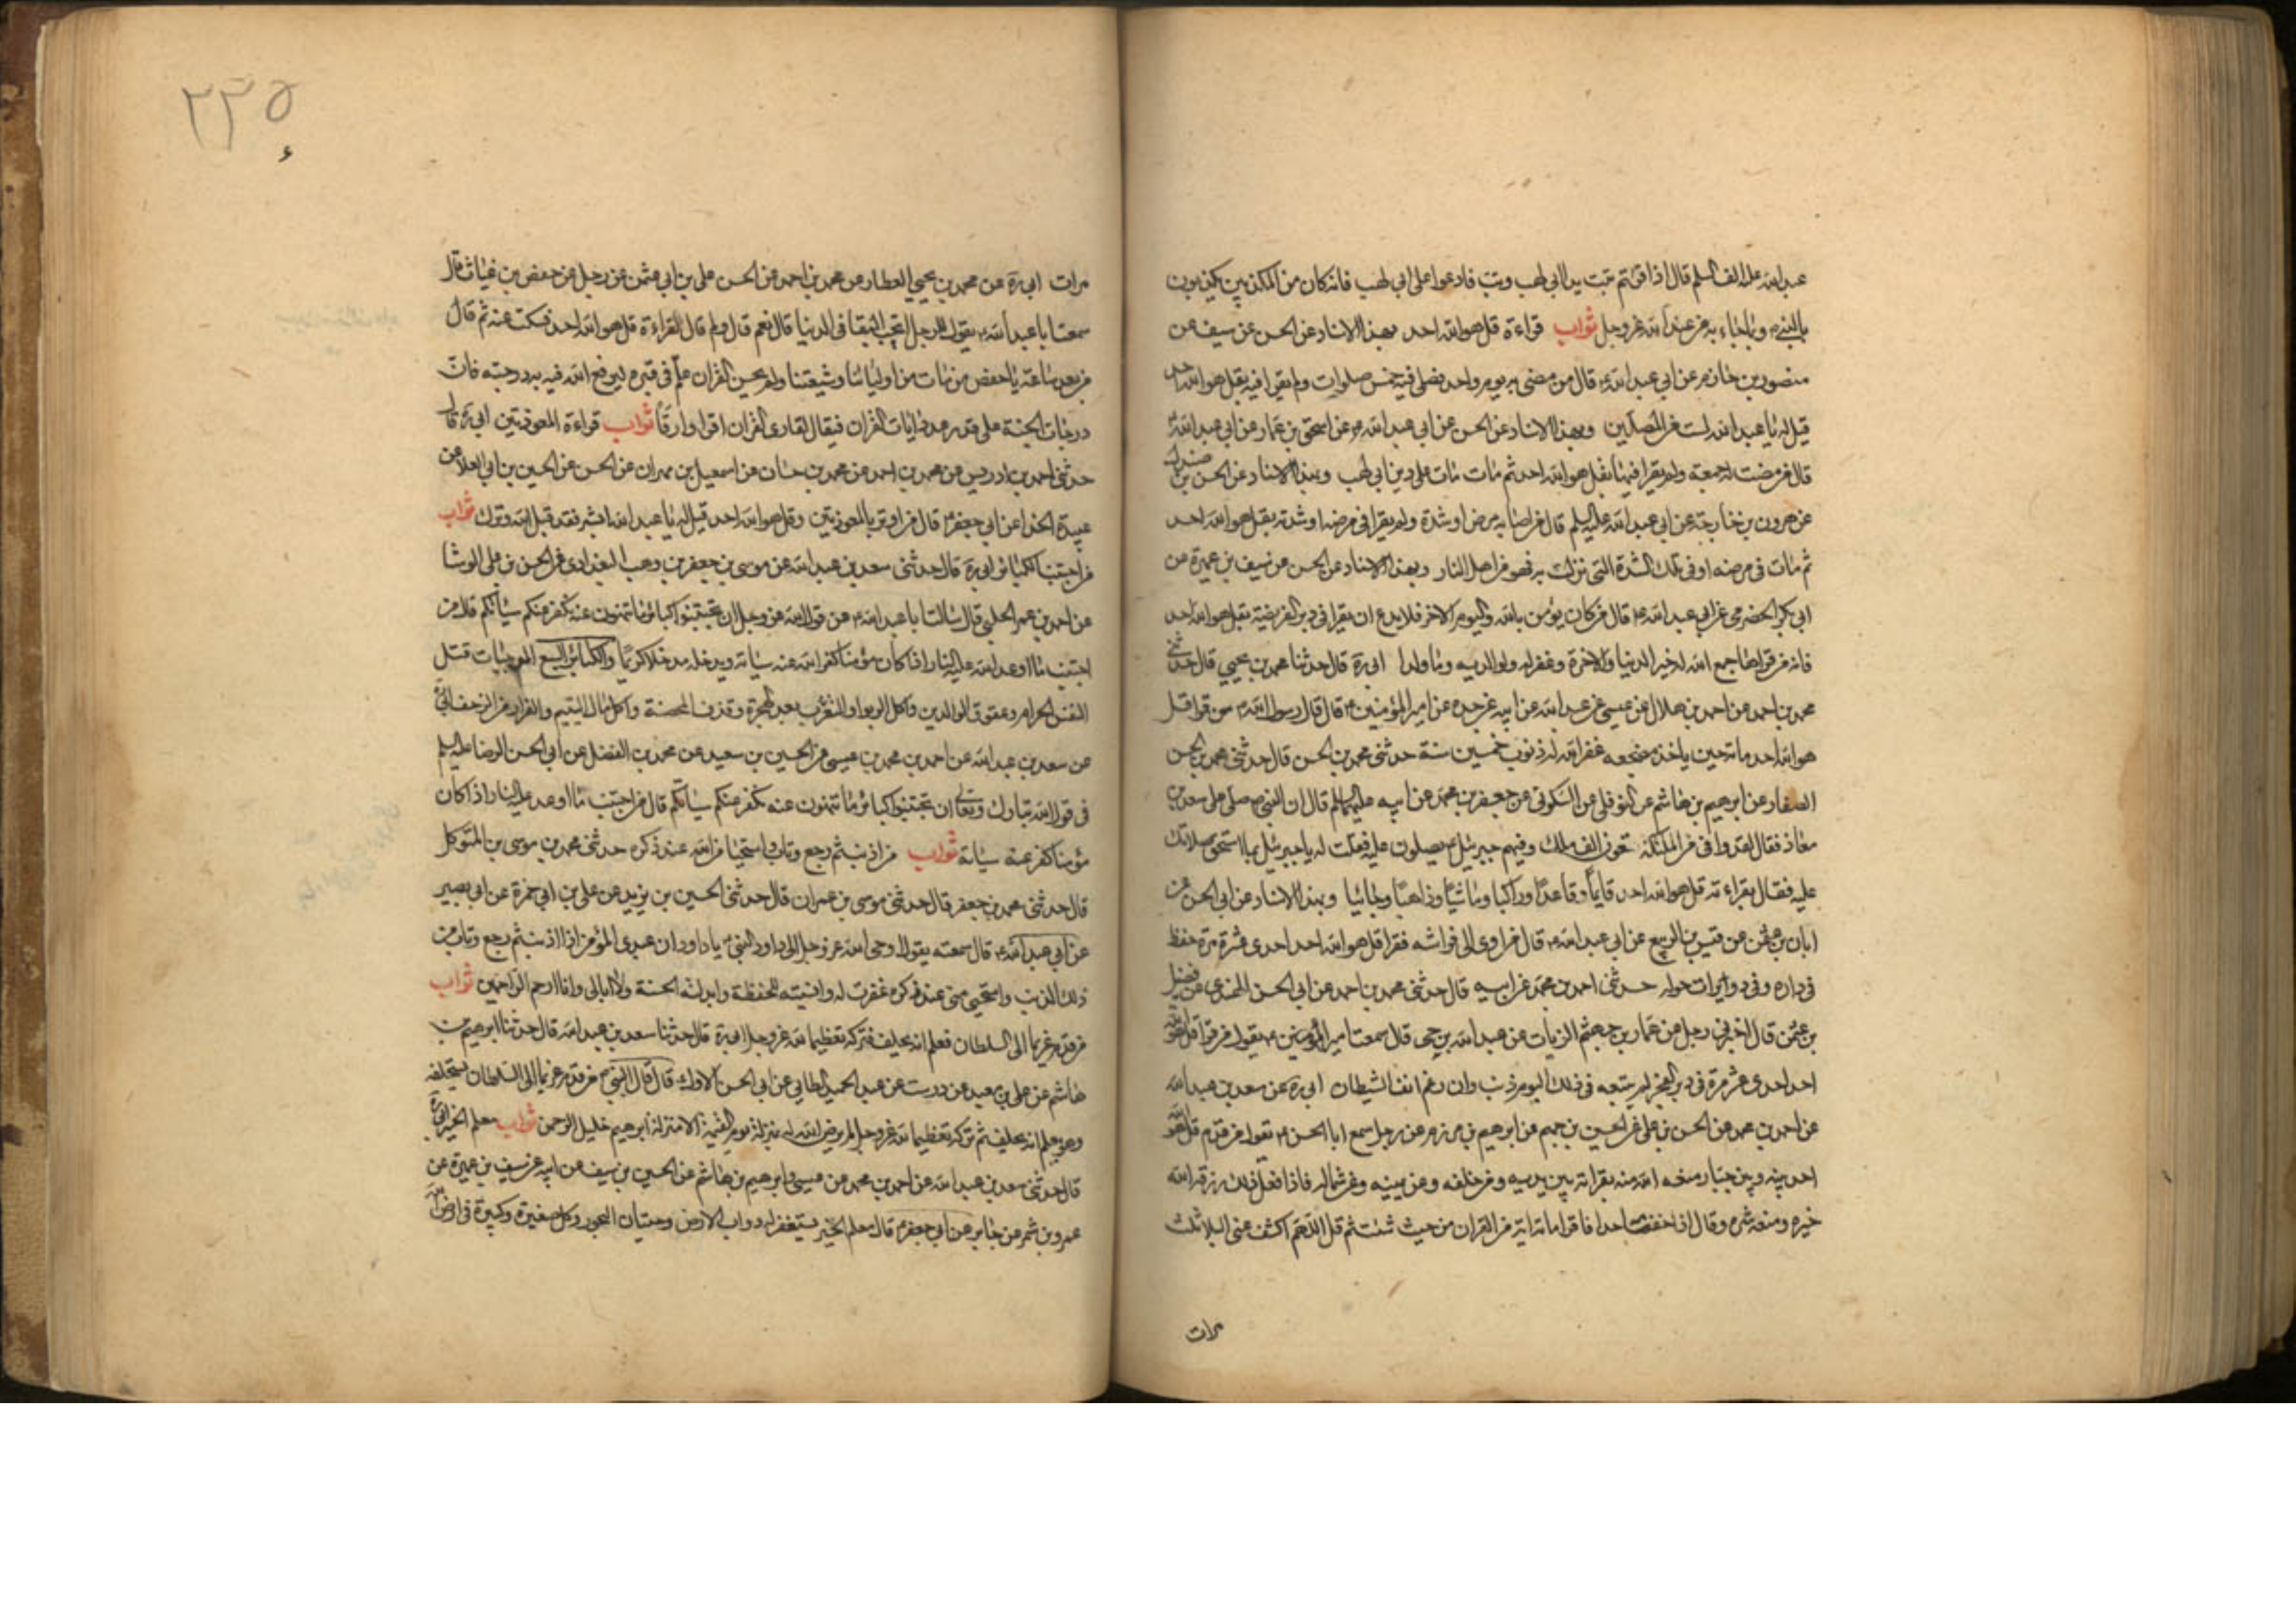 عبد الله عليه الف السلم قال اذا قرأتم تبت يدا ابي لهب وتب فادعوا على ابي لهب فانه كان من المكذبين يكذبون
بالنبي وبما جاء به من عند الله عز وجل ثواب قراءة قل هو الله احد بهذا الاسناد عن الحسن عن سيف عن
منصور بن حازم عن ابي عبد الله ع قال من مضى به يوم واحد فصلى فيه خمس صلوات ولم يقرا فيه بقل هو الله احد
قيل له يا عبد الله لست من المصلين وبهذا الاسناد عن الحسن عن ابي عبد الله ع عن اسحق بن عمار عن ابي عبد الله ع
قال من مضت له جمعة ولم يقرا فيها بقل هو الله احد ثم مات مات على دين ابي لهب وبهذا الاسناد عن الحسن بن
عن هرون بن خارجة عن ابي عبد الله عليه السلم قال من اصابه مرض او شدة ولم يقرا في مرضه او شدته بقل هو الله احد
ثم مات في مرضه او في تلك الشدة التي نزلت به فهو من اهل النار وبهذا الاسناد عن الحسن عن سيف بن عميرة عن
ابي بكر الحضرمي عن ابي عبد الله ع قال من كان يؤمن بالله واليوم الاخر فلا يدع ان يقرا في دبر الفريضة بقل هو الله احد
فانه من قراها جمع الله له خير الدنيا والاخرة وغفر له ولوالديه وما ولدا ابي ره قال حدثنا محمد بن يحيى قال حدثني
محمد بن احمد عن احمد بن هلال عن عيسى بن عبد الله عن ابيه عن جده عن امير المؤمنين ع قال قال رسول الله ص من قرا قل
هو الله احد مائة حين ياخذ مضجعه غفر الله له ذنوب خمسين سنة حدثني محمد بن الحسن قال حدثني محمد بن الحسن
الصفار عن ابرهيم بن هاشم عن النوفلي عن السكوني عن جعفر بن محمد عن ابيه عليهما السلم قال ان النبي ص صلى على سعد بن
معاذ فقال لقد وافى من الملئكة تسعون الف ملك وفيهم جبرئيل ع يصلون عليه فقلت له يا جبرئيل بما استحق صلاتك
عليه فقال بقراءته قل هو الله احد قايما وقاعدا وراكبا وماشيا وذاهبا وجائيا وبهذا الاسناد عن ابي الحسن عن
ابان بن عثمن عن قيس بن الربيع عن ابي عبد الله ع قال من اوى الى فراشه فقرا قل هو الله احد احدى عشرة مرة حفظ
في داره وفي دويرات حوله حدثني احمد بن محمد عن ابيه قال حدثني محمد بن احمد عن ابي الحسن النهدي عن فضيل
بن عثمن قال اخبرني رجل عن عمار بن جهم الزيات عن عبد الله بن حي قال سمعت امير المؤمنين ع يقول من قرا قل هو الله
احد احدى عشر مرة في دبر الفجر لم يتبعه في ذلك اليوم ذنب وان رغم انف الشيطان ابي ره عن سعد بن عبد الله
عن احمد بن محمد عن الحسن بن علي عن الحسين بن جهم عن ابرهيم بن مهزم عن رجل سمع ابا الحسن ع يقول من قدم قل هو الله
احد بينه وبين جبار منعه الله منه بقرائته بين يديه ومن خلفه وعن يمينه وعن شماله فاذا فعل ذلك رزقه الله
خيره ومنعه شره وقال اذا خفت احدا فاقرا مائة اية من القران من حيث شئت ثم قل اللهم اكشف عني البلا ثلث
مرات
٢٣٥
مرات ابي ره عن محمد بن يحيى العطار عن محمد بن احمد عن الحسن علي بن ابي عثمن عن رجل عن حفص بن غياث قال
سمعت ابا عبد الله ع يقول لرجل اتحب البقا في الدنيا قال نعم قال ولم قال لقراءة قل هو الله احد فسكت عنه ثم قال
من بعد ساعة يا حفص من مات من اوليائنا وشيعتنا ولم يحسن القران علم في قبره ليرفع الله فيه به درجته فان
درجات الجنة على قدر عدد ايات القران فيقال لقارى القران اقرا وارقا ثواب قراءة المعوذتين ابي ره قال
حدثني احمد بن ادريس عن محمد بن احمد عن محمد بن حسان عن اسمعيل بن مهران عن الحسن عن الحسين بن ابي العلا عن
عبيدة الحذا عن ابي جعفر ع قال من اوتر بالمعوذتين وقل هو الله احد قيل له يا عبد الله ابشر فقد قبل الله وترك ثواب
من اجتنب الكبائر ابي ره قال حدثني سعد بن عبد الله عن موسى بن جعفر بن وهب البغدادي عن الحسن بن علي الوشا
عن احمد بن عمر الحلبي قال سالت ابا عبد الله ع عن قول الله عز وجل ان تجتنبوا كبائر ما تنهون عنه نكفر عنكم سياتكم قال من
اجتنب ما اوعد الله عليه النار اذا كان مؤمنا كفر الله عنه سياته ويدخله مدخلا كريما والكبائر السبع الموجبات قتل
النفس الحرام وعقوق الوالدين واكل الربوا والتعرب بعد الهجرة وقذف المحصنة واكل مال اليتيم والفرار من الزحف ابي ره
عن سعد بن عبد الله عن احمد بن محمد بن عيسى عن الحسين بن سعيد عن محمد بن الفضل عن ابي الحسن الرضا عليه السلم
في قول الله تبارك وتعالى ان تجتنبوا كبائر ما تنهون عنه نكفر عنكم سياتكم قال من اجتنب ما اوعد عليه النار اذا كان
مؤمنا كفر عنه سياته ثواب من اذنب ثم رجع وتاب واستحيا من الله عند ذكره حدثني محمد بن موسى بن المتوكل
قال حدثني محمد بن جعفر قال حدثني موسى بن عمران قال حدثني الحسين بن يزيد عن علي بن ابي حمزة عن ابي بصير
عن ابي عبد الله ع قال سمعته يقول اوحى الله عز وجل الى داود النبي ع يا داود ان عبدي المؤمن اذا اذنب ثم رجع وتاب من
ذلك الذنب واستحيى مني عند ذكره غفرت له وانسيته الحفظة وابدلته الحسنة ولا ابالي وانا ارحم الراحمين ثواب
من قدم غريما الى السلطان فعلم انه يحلف فتركه تعظيما لله عز وجل ابي ره قال حدثنا سعد بن عبد الله قال حدثنا ابرهيم بن
هاشم عن علي بن معبد عن درست عن عبد الحميد الطايي عن ابي الحسن الاول قال قال النبي ص من قدم غريما الى السلطان يستحلفه
وهو يعلم انه يحلف ثم تركه تعظيما لله عز وجل لم يرض الله له بمنزلة يوم القيمة الا منزلة ابرهيم خليل الرحمن ثواب معلم الخير ابي ره
قال حدثني سعد بن عبد الله عن احمد بن محمد عن عيسى وابرهيم بن هاشم عن الحسين بن سيف عن ابيه عن سيف بن عميرة عن
عمرو بن شمر عن جابر عن ابي جعفر ع قال معلم الخير يستغفر له دواب الارض وحيتان البحور وكل صغيرة وكبيرة في ارض الله